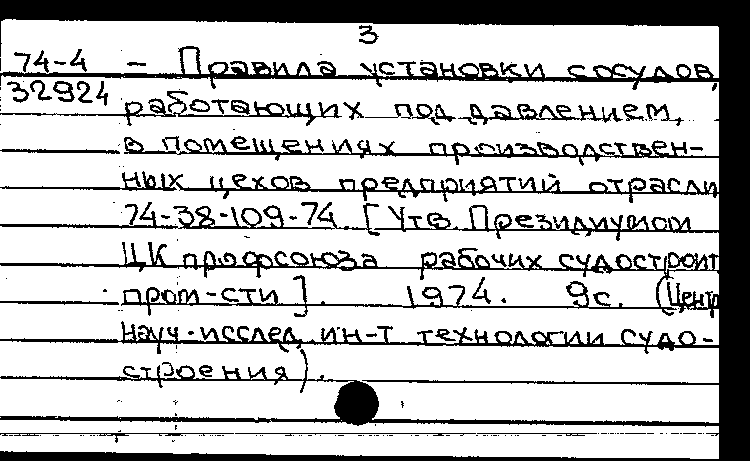 3
74-4 - Правила установки сосудов,
32924 работающих под давлением,
в помещениях производствен-
ных цехов предприятий отрасли
74-38-109-74. [Утв. Президиумом
ЦК профсоюза рабочих судостроит.
пром-сти]. 1974. 9с. (Центр.
науч.-исслед. ин-т технологии судо-
строения).